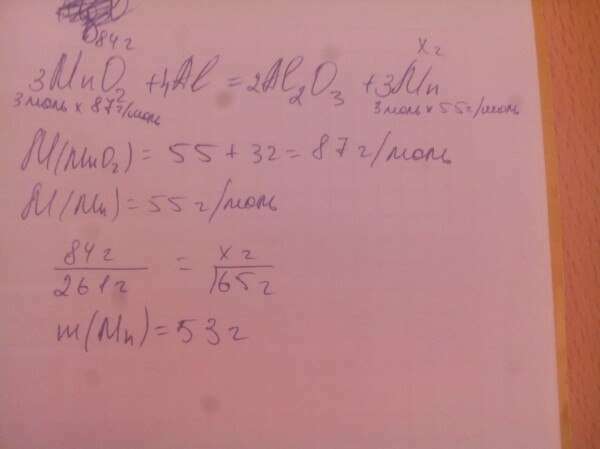 84 г x г
3MnO2 + 4Al = 2Al2O3 + 3Mn
3 моль x 87 г/моль 3 моль x 55 г/моль
M(MnO2) = 55 + 32 = 87 г/моль
M(Mn) = 55 г/моль
84 г / 261 г = x г / 165 г
m(Mn) = 53 г